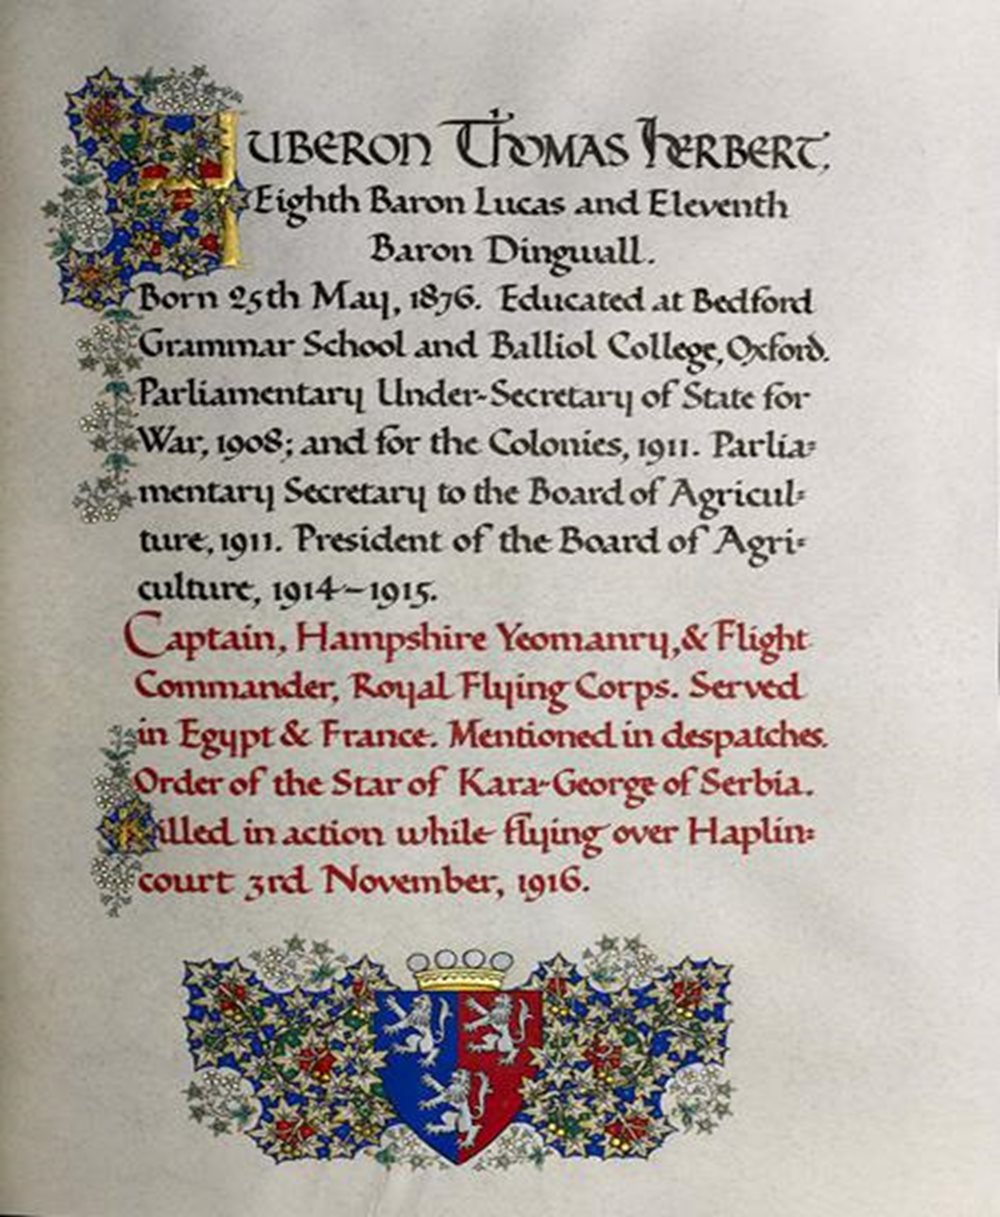 AUBERON THOMAS HERBERT,
Eighth Baron Lucas and Eleventh
Baron Dingwall.
Born 25th May, 1876. Educated at Bedford
Grammar School and Balliol College, Oxford.
Parliamentary Under-Secretary of State for
War, 1908; and for the Colonies, 1911. Parlia=
mentary Secretary to the Board of Agricul=
ture, 1911. President of the Board of Agri=
culture, 1914–1915.
Captain, Hampshire Yeomanry, & Flight
Commander, Royal Flying Corps. Served
in Egypt & France. Mentioned in despatches.
Order of the Star of Kara-George of Serbia.
Killed in action while flying over Haplin=
court 3rd November, 1916.